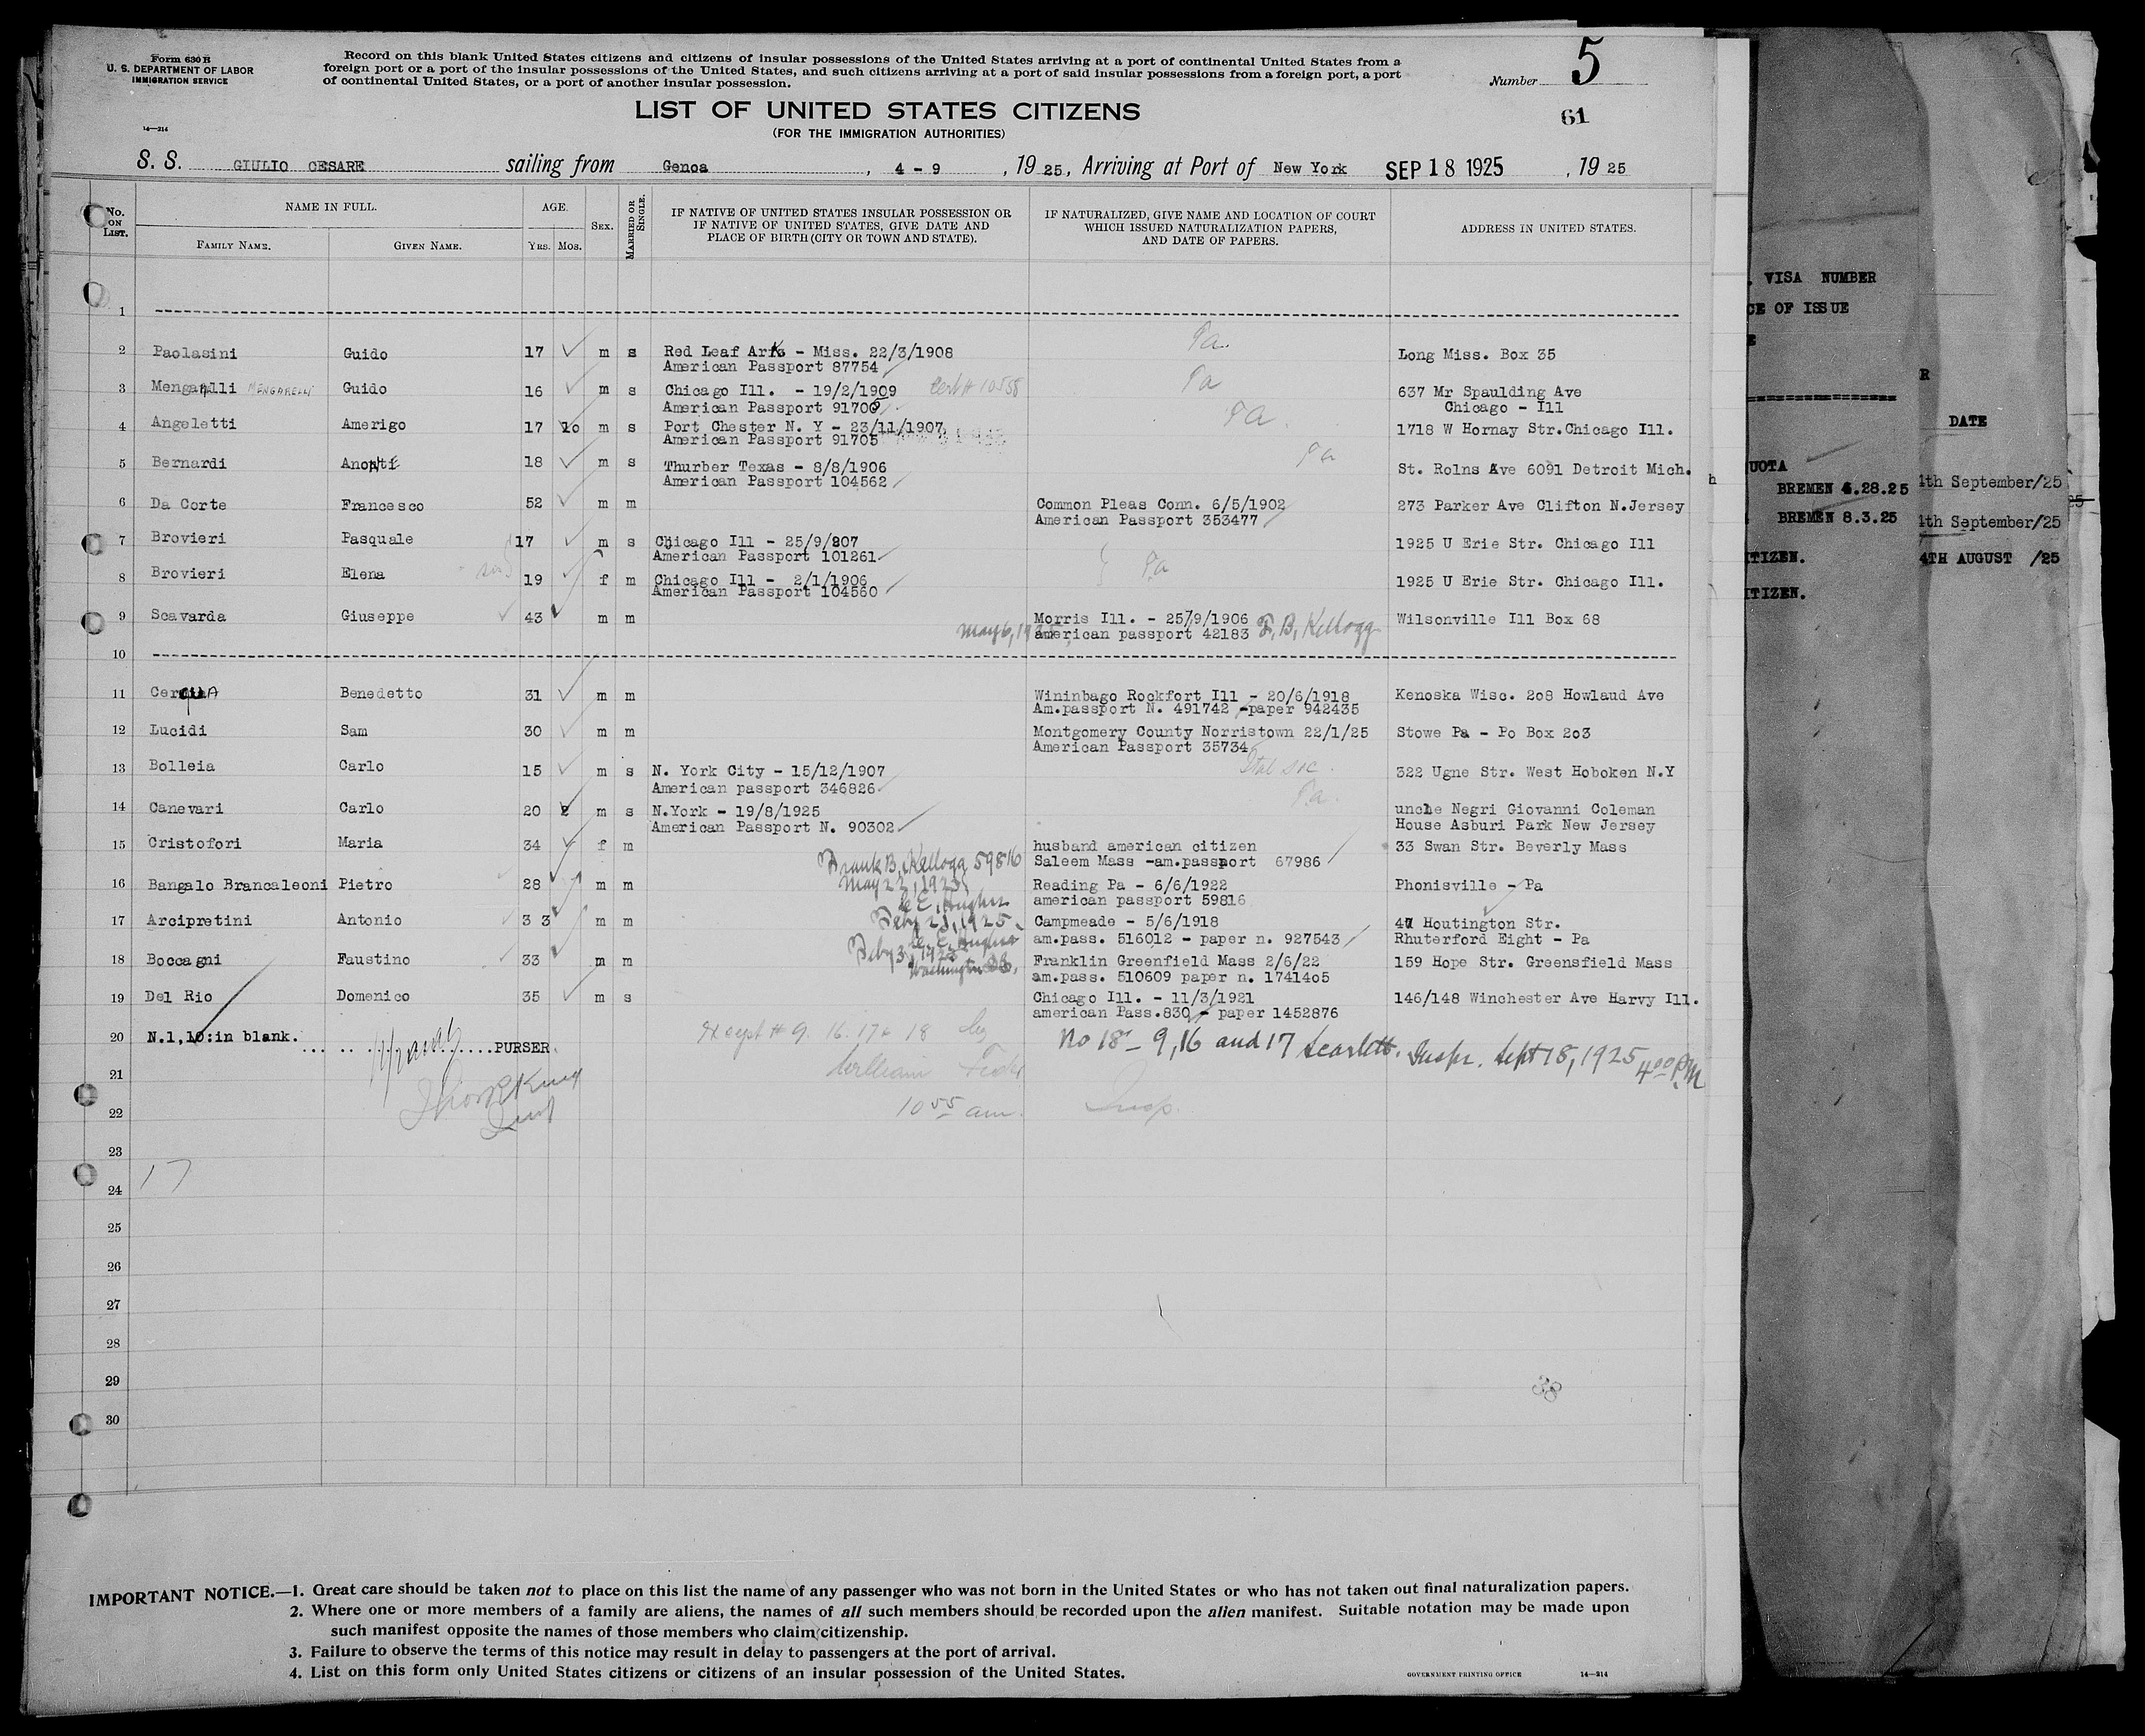 Form 630 B
U. S. DEPARTMENT OF LABOR
IMMIGRATION SERVICE
Record on this blank United States citizens and citizens of insular possessions of the United States arriving at a port of continental United States from a
foreign port or a port of the insular possessions of the United States, and such citizens arriving at a port of said insular possessions from a foreign port, a port
of continental United States, or a port of another insular possession.
Number 5
LIST OF UNITED STATES CITIZENS
61
(FOR THE IMMIGRATION AUTHORITIES)
14—214
S. S. GIULIO CESARE sailing from Genoa , 4 - 9 , 19 25, Arriving at Port of New York SEP 18 1925 , 19 25
No. ON LIST. NAME IN FULL. AGE. SEX. MARRIED OR SINGLE. IF NATIVE OF UNITED STATES INSULAR POSSESSION OR IF NATIVE OF UNITED STATES, GIVE DATE AND PLACE OF BIRTH (CITY OR TOWN AND STATE). IF NATURALIZED, GIVE NAME AND LOCATION OF COURT WHICH ISSUED NATURALIZATION PAPERS, AND DATE OF PAPERS. ADDRESS IN UNITED STATES.
FAMILY NAME. GIVEN NAME. YRS. MOS.
1
2 Paolasini Guido 17 m s Red Leaf Ark - Miss. 22/3/1908 Pa. Long Miss. Box 35
American Passport 87754
3 Mengarelli MENGARELLI Guido 16 m s Chicago Ill. - 19/2/1909 Cert # 10555 Pa 637 Mr Spaulding Ave
American Passport 91706 Chicago - Ill
4 Angeletti Amerigo 17 10 m s Port Chester N. Y - 23/11/1907 Pa. 1718 W Hornay Str.Chicago Ill.
American Passport 91705
5 Bernardi 18 m s Thurber Texas - 8/8/1906 Pa St. Rolns Ave 6091 Detroit Mich.
American Passport 104562
6 Da Corte Francesco 52 m m Common Pleas Conn. 6/5/1902 273 Parker Ave Clifton N.Jersey
American Passport 353477
7 Brovieri Pasquale 17 m s Chicago Ill - 25/9/807 1925 U Erie Str. Chicago Ill
American Passport 101261
8 Brovieri Elena 19 f m Chicago Ill - 2/1/1906 Pa 1925 U Erie Str. Chicago Ill.
American Passport 104560
9 Scavarda Giuseppe 43 m m Morris Ill. - 25/9/1906 Wilsonville Ill Box 68
May 6, american passport 42183 F. B. Kellogg
10
11 Benedetto 31 m m Wininbago Rockfort Ill - 20/6/1918 Kenoska Wisc. 208 Howlaud Ave
Am.passport N. 491742 -paper 942435
12 Lucidi Sam 30 m m Montgomery County Norristown 22/1/25 Stowe Pa - Po Box 203
American Passport 35734
13 Bolleia Carlo 15 m s N. York City - 15/12/1907 322 Ugne Str. West Hoboken N.Y
American passport 346826
14 Canevari Carlo 20 2 m s N.York - 19/8/1925 Pa. uncle Negri Giovanni Coleman
American Passport N. 90302 House Asburi Park New Jersey
15 Cristofori Maria 34 f m husband american citizen 33 Swan Str. Beverly Mass
Frank B. Kellogg 59816 Saleem Mass -am.passport 67986
16 Bangalo Brancaleoni Pietro 28 m m May 22, 1925, Reading Pa - 6/6/1922 Phonisville - Pa
C. E. Hughes american passport 59816
17 Arcipretini Antonio 33 m m Feby 21, 1925. Campmeade - 5/6/1918 47 Houtington Str.
C. E. Hughes am.pass. 516012 - paper n. 927543 Rhuterford Eight - Pa
18 Boccagni Faustino 33 m m Feby 3, 1925 Franklin Greenfield Mass 2/6/22 159 Hope Str. Greensfield Mass
Washington D.C. am.pass. 510609 paper n. 1741405
19 Del Rio Domenico 35 m s Chicago Ill. - 11/3/1921 146/148 Winchester Ave Harvy Ill.
american Pass.830 - paper 1452876
20 N.1,10:in blank. PURSER. except # 9. 16. 17 & 18 by No 18 - 9, 16 and 17 Scarlett. Inspr. Sept 18, 1925 4 00 PM
21 William
22 10 55 am. Insp.
23
24 17
25
26
27
28
29
30
IMPORTANT NOTICE.—1. Great care should be taken not to place on this list the name of any passenger who was not born in the United States or who has not taken out final naturalization papers.
2. Where one or more members of a family are aliens, the names of all such members should be recorded upon the alien manifest. Suitable notation may be made upon
such manifest opposite the names of those members who claim citizenship.
3. Failure to observe the terms of this notice may result in delay to passengers at the port of arrival.
4. List on this form only United States citizens or citizens of an insular possession of the United States.
GOVERNMENT PRINTING OFFICE 14—214
VISA NUMBER
CE OF ISSUE
E
R
DATE
UOTA
BREMEN 4.28.25 4th September/25
BREMEN 8.3.25 4th September/25
TIZEN. 4TH AUGUST /25
ITIZEN.